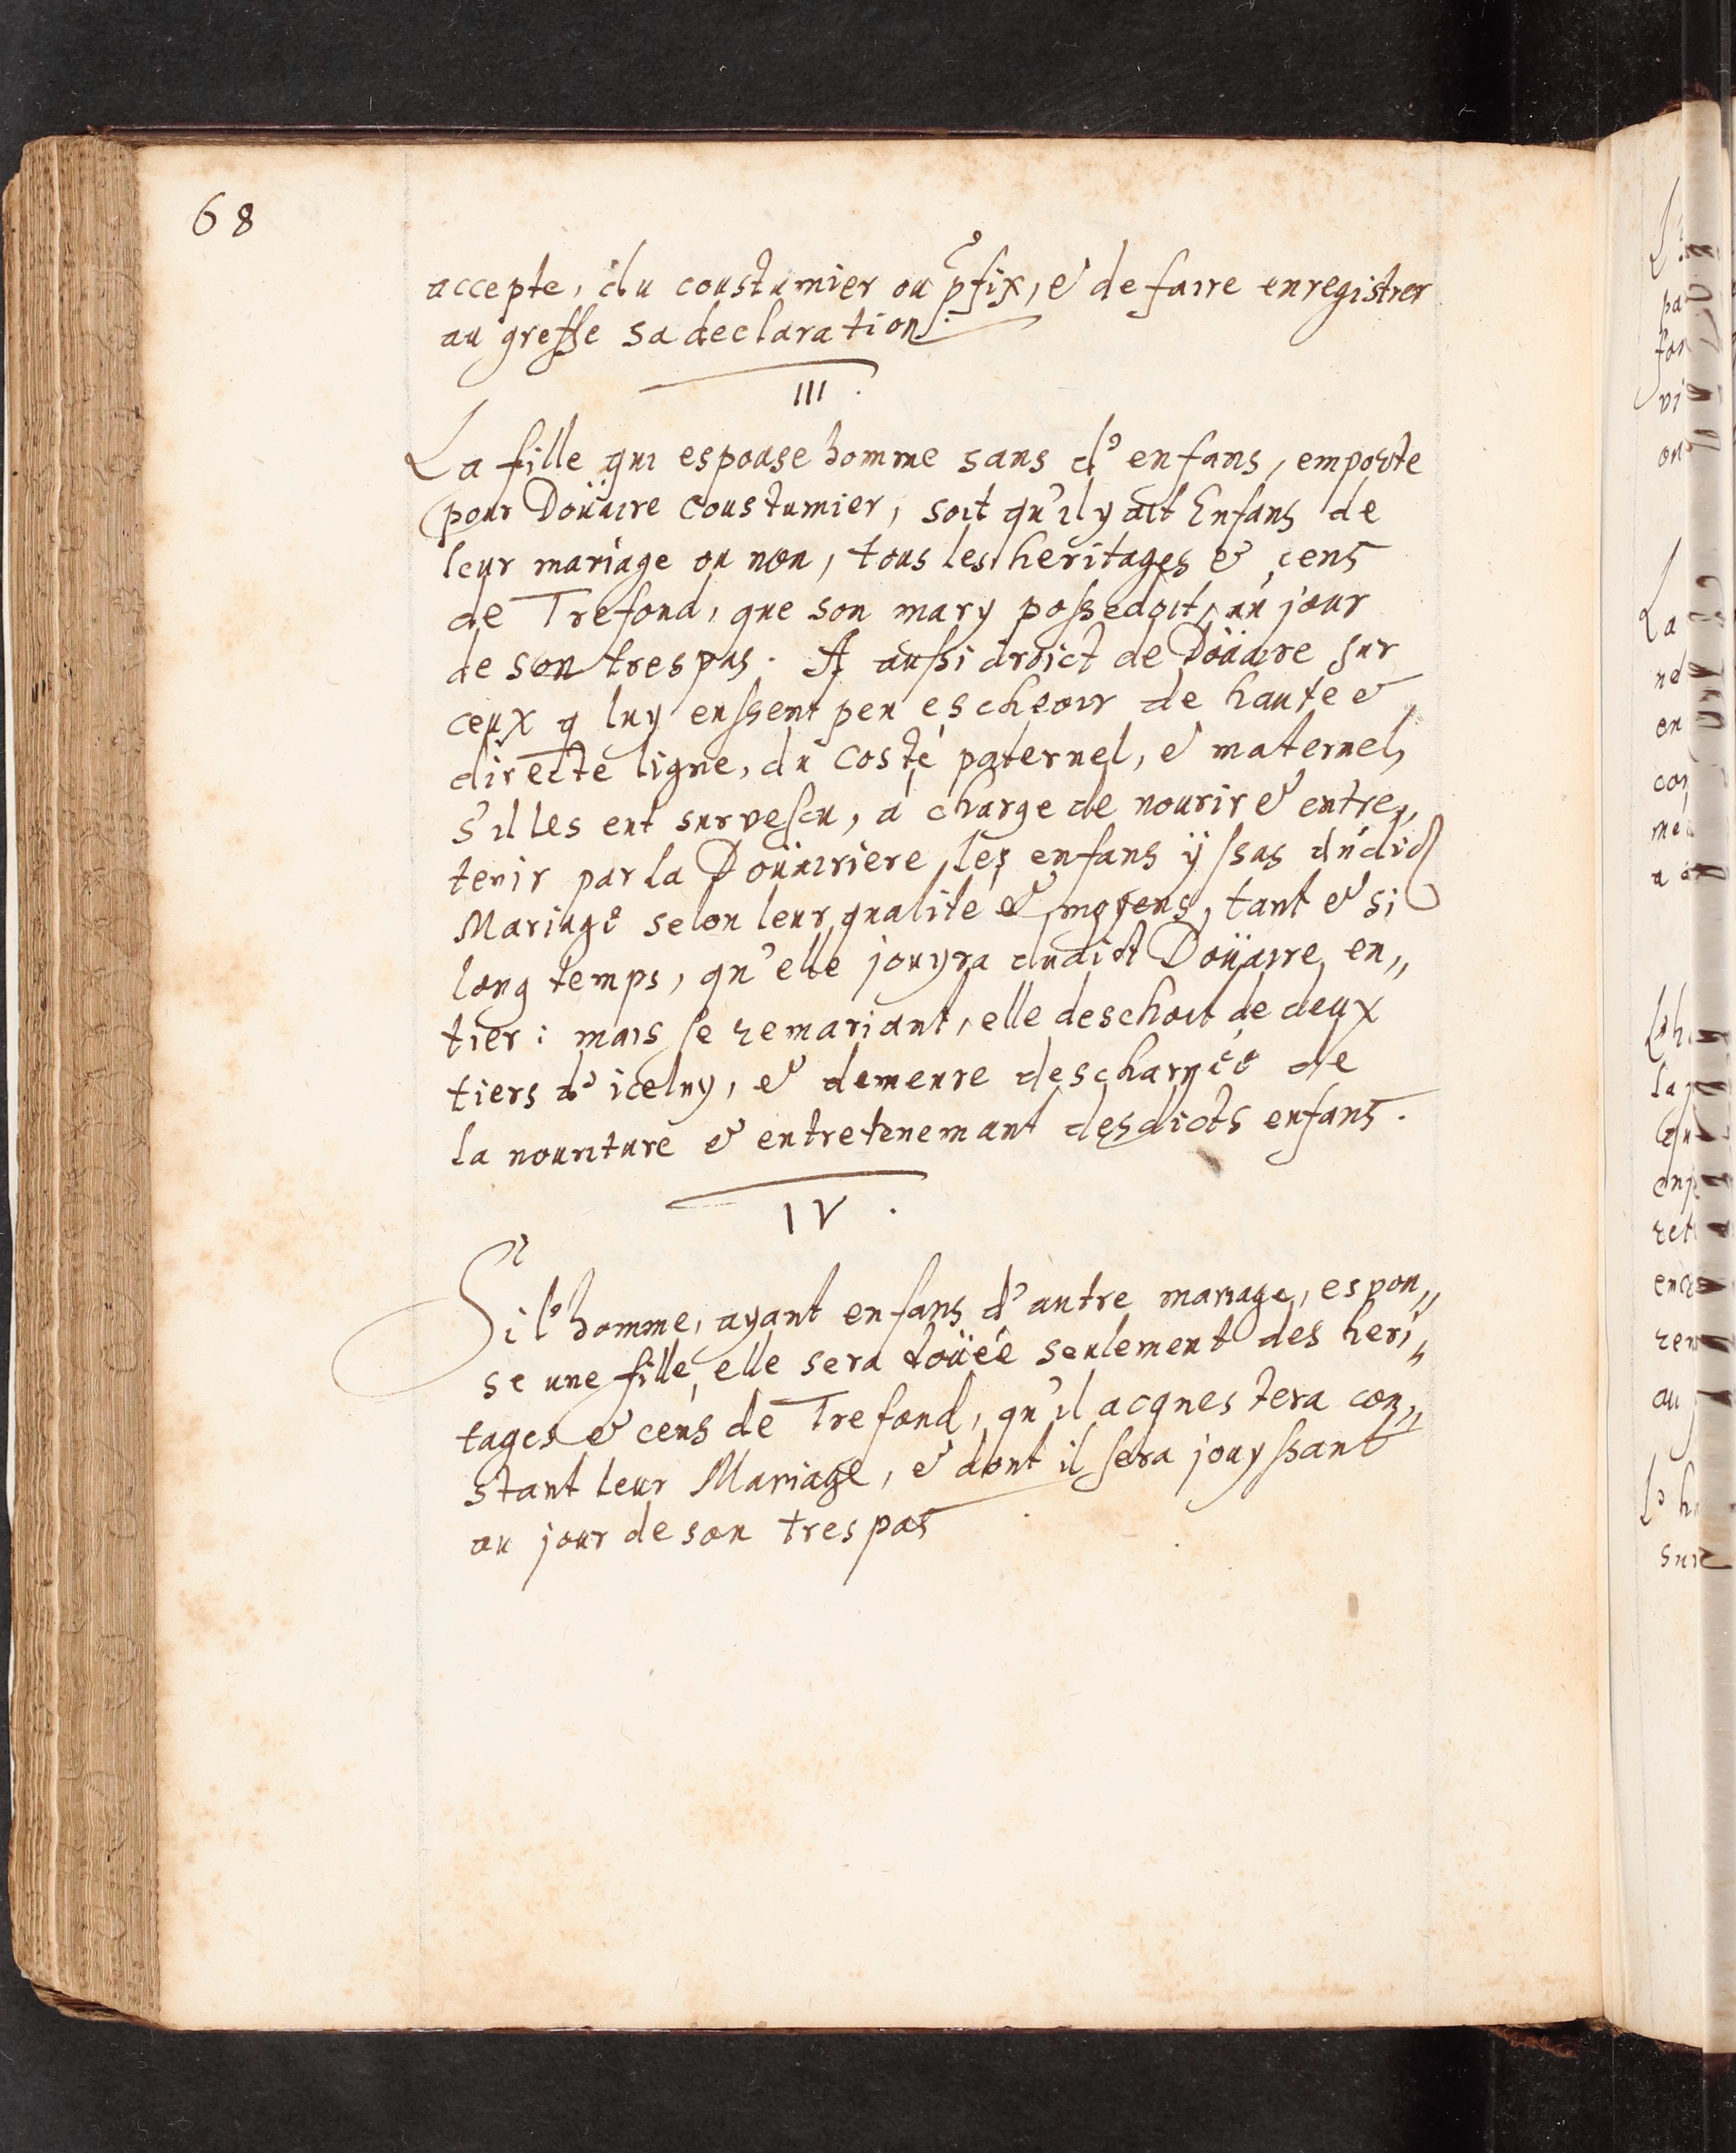 68
accepte, du coustumier ou p̄fix, & de faire enregistrer
au greffe sa declaration.
III.
La fille qui espouse homme sans d'enfans, emporte
pour Doüaire coustumier, soit qu'il y ait Enfans de
leur mariage ou non, tous les heritages & cens
de Trefond, que son mary possedoit, au jour
de son trespas. A aussi droict de Doüaire sur
ceux q luy eussent peu escheoir de haute &
directe ligne, du costé paternel, & maternel,
s'il les eut survescu, à charge de nourir & entre„
tenir par la Doüairiere, les enfans ÿssas dudict
Mariage selon leur qualite & moyens, tant & si
long temps, qu'elle jouyra dudict Doüaire en„
tier: mais se remariant, elle deschoit de deux
tiers d'iceluy, & demeure deschargée de
la nouriture & entretenemant desdicts enfans.
IV.
Si l'homme, ayant enfans d'autre mariage, espou„
se une fille, elle sera doüée seulement des heri„
tages & cens de Trefond, qu'il acquestera con„
stant leur Mariage, & dont il sera jouyssant
au jour de son trespas